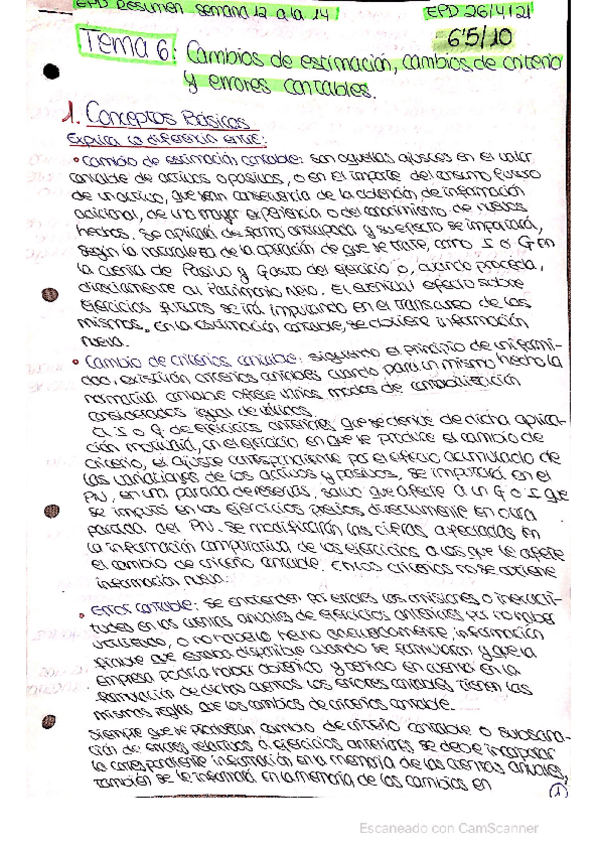 EPD Resumen semana 12 a la 14
EPD 26/4/21
6'5/10
Tema 6: Cambios de estimación, cambios de criterio
y errores contables.
1. Conceptos Básicos
Explica la diferencia entre:
• Cambio de estimación contable: son aquellos ajustes en el valor
contable de activos o pasivos, o en el importe del consumo futuro
de un activo, que sean consecuencia de la obtención de información
adicional, de una mayor experiencia o del conocimiento de nuevos
hechos. Se aplicará de forma anticipada y su efecto se imputará,
según la naturaleza de la operación de que se trate, como I o G en
la cuenta de Pasivo y Gasto del ejercicio o, cuando proceda,
directamente al Patrimonio Neto. El eventual efecto sobre
ejercicios futuros se irá imputando en el transcurso de los
mismos. En la estimación contable, se obtiene información
nueva.
• Cambio de criterios contable: siguiendo el principio de uniformi-
dad, existirán criterios contables cuando para un mismo hecho la
normativa contable ofrece varios modos de contabilización
considerados igual de válidos.
El I o G de ejercicios anteriores que se derive de dicha aplica-
ción motivará, en el ejercicio en que se produce el cambio de
criterio, el ajuste correspondiente por el efecto acumulado de
las variaciones de los activos y pasivos, se imputará en el
PN, en una partida de reservas, salvo que afecte a un G o I que
se imputó en los ejercicios previos directamente en otra
partida del PN. Se modificarán las cifras afectadas en
la información comparativa de los ejercicios a los que le afecte
el cambio de criterio contable. En los criterios no se obtiene
información nueva.
• Error contable: se entienden por errores las omisiones o inexacti-
tudes en las cuentas anuales de ejercicios anteriores por no haber
utilizado, o no haberlo hecho adecuadamente, información
fiable que estaba disponible cuando se formularon y que la
empresa podría haber obtenido y tenido en cuenta en la
formulación de dichas cuentas. Los errores contables tienen las
mismas reglas que los cambios de criterios contable.
Siempre que se produzcan cambio de criterio contable o subsana-
ción de errores relativos a ejercicios anteriores se debe incorporar
la correspondiente información en la memoria de las cuentas anuales,
también se le informará en la memoria de los cambios en
1
Escaneado con CamScanner